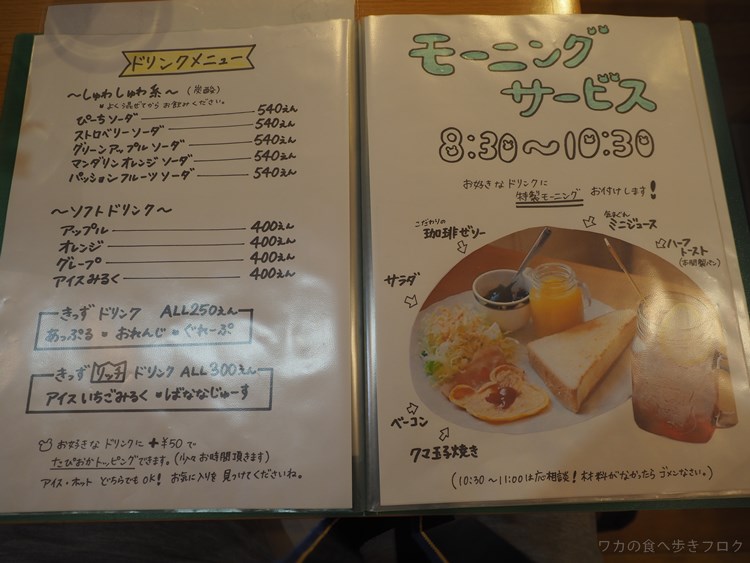 ドリンクメニュー
～しゅわしゅわ系～(炭酸)
♥よく混ぜてからお飲みください。
ぴーちソーダ 540えん
ストロベリーソーダ 540えん
グリーンアップルソーダ 540えん
マンダリンオレンジソーダ 540えん
パッションフルーツソーダ 540えん
～ソフトドリンク～
アップル 400えん
オレンジ 400えん
グレープ 400えん
アイスみるく 400えん
きっずドリンク ALL250えん
あっぷる・おれんじ・ぐれーぷ
きっずリッチドリンク ALL300えん
アイスいちごみるく・ばななじゅーす
お好きなドリンクに+¥50で
たぴおかトッピングできます。(少々お時間頂きます)
アイス・ホットどちらでもOK! お気に入りを見つけてくださいね。
モーニング
サービス
8:30～10:30
お好きなドリンクに
特製モーニング お付けします!
こだわりの
珈琲ゼリー
気まぐれ
ミニジュース
ハーフ
トースト
サラダ
ベーコン
クマ玉子焼き
(10:30～11:00は応相談! 材料がなかったらゴメンなさい。)
ワカの食べ歩きブログ